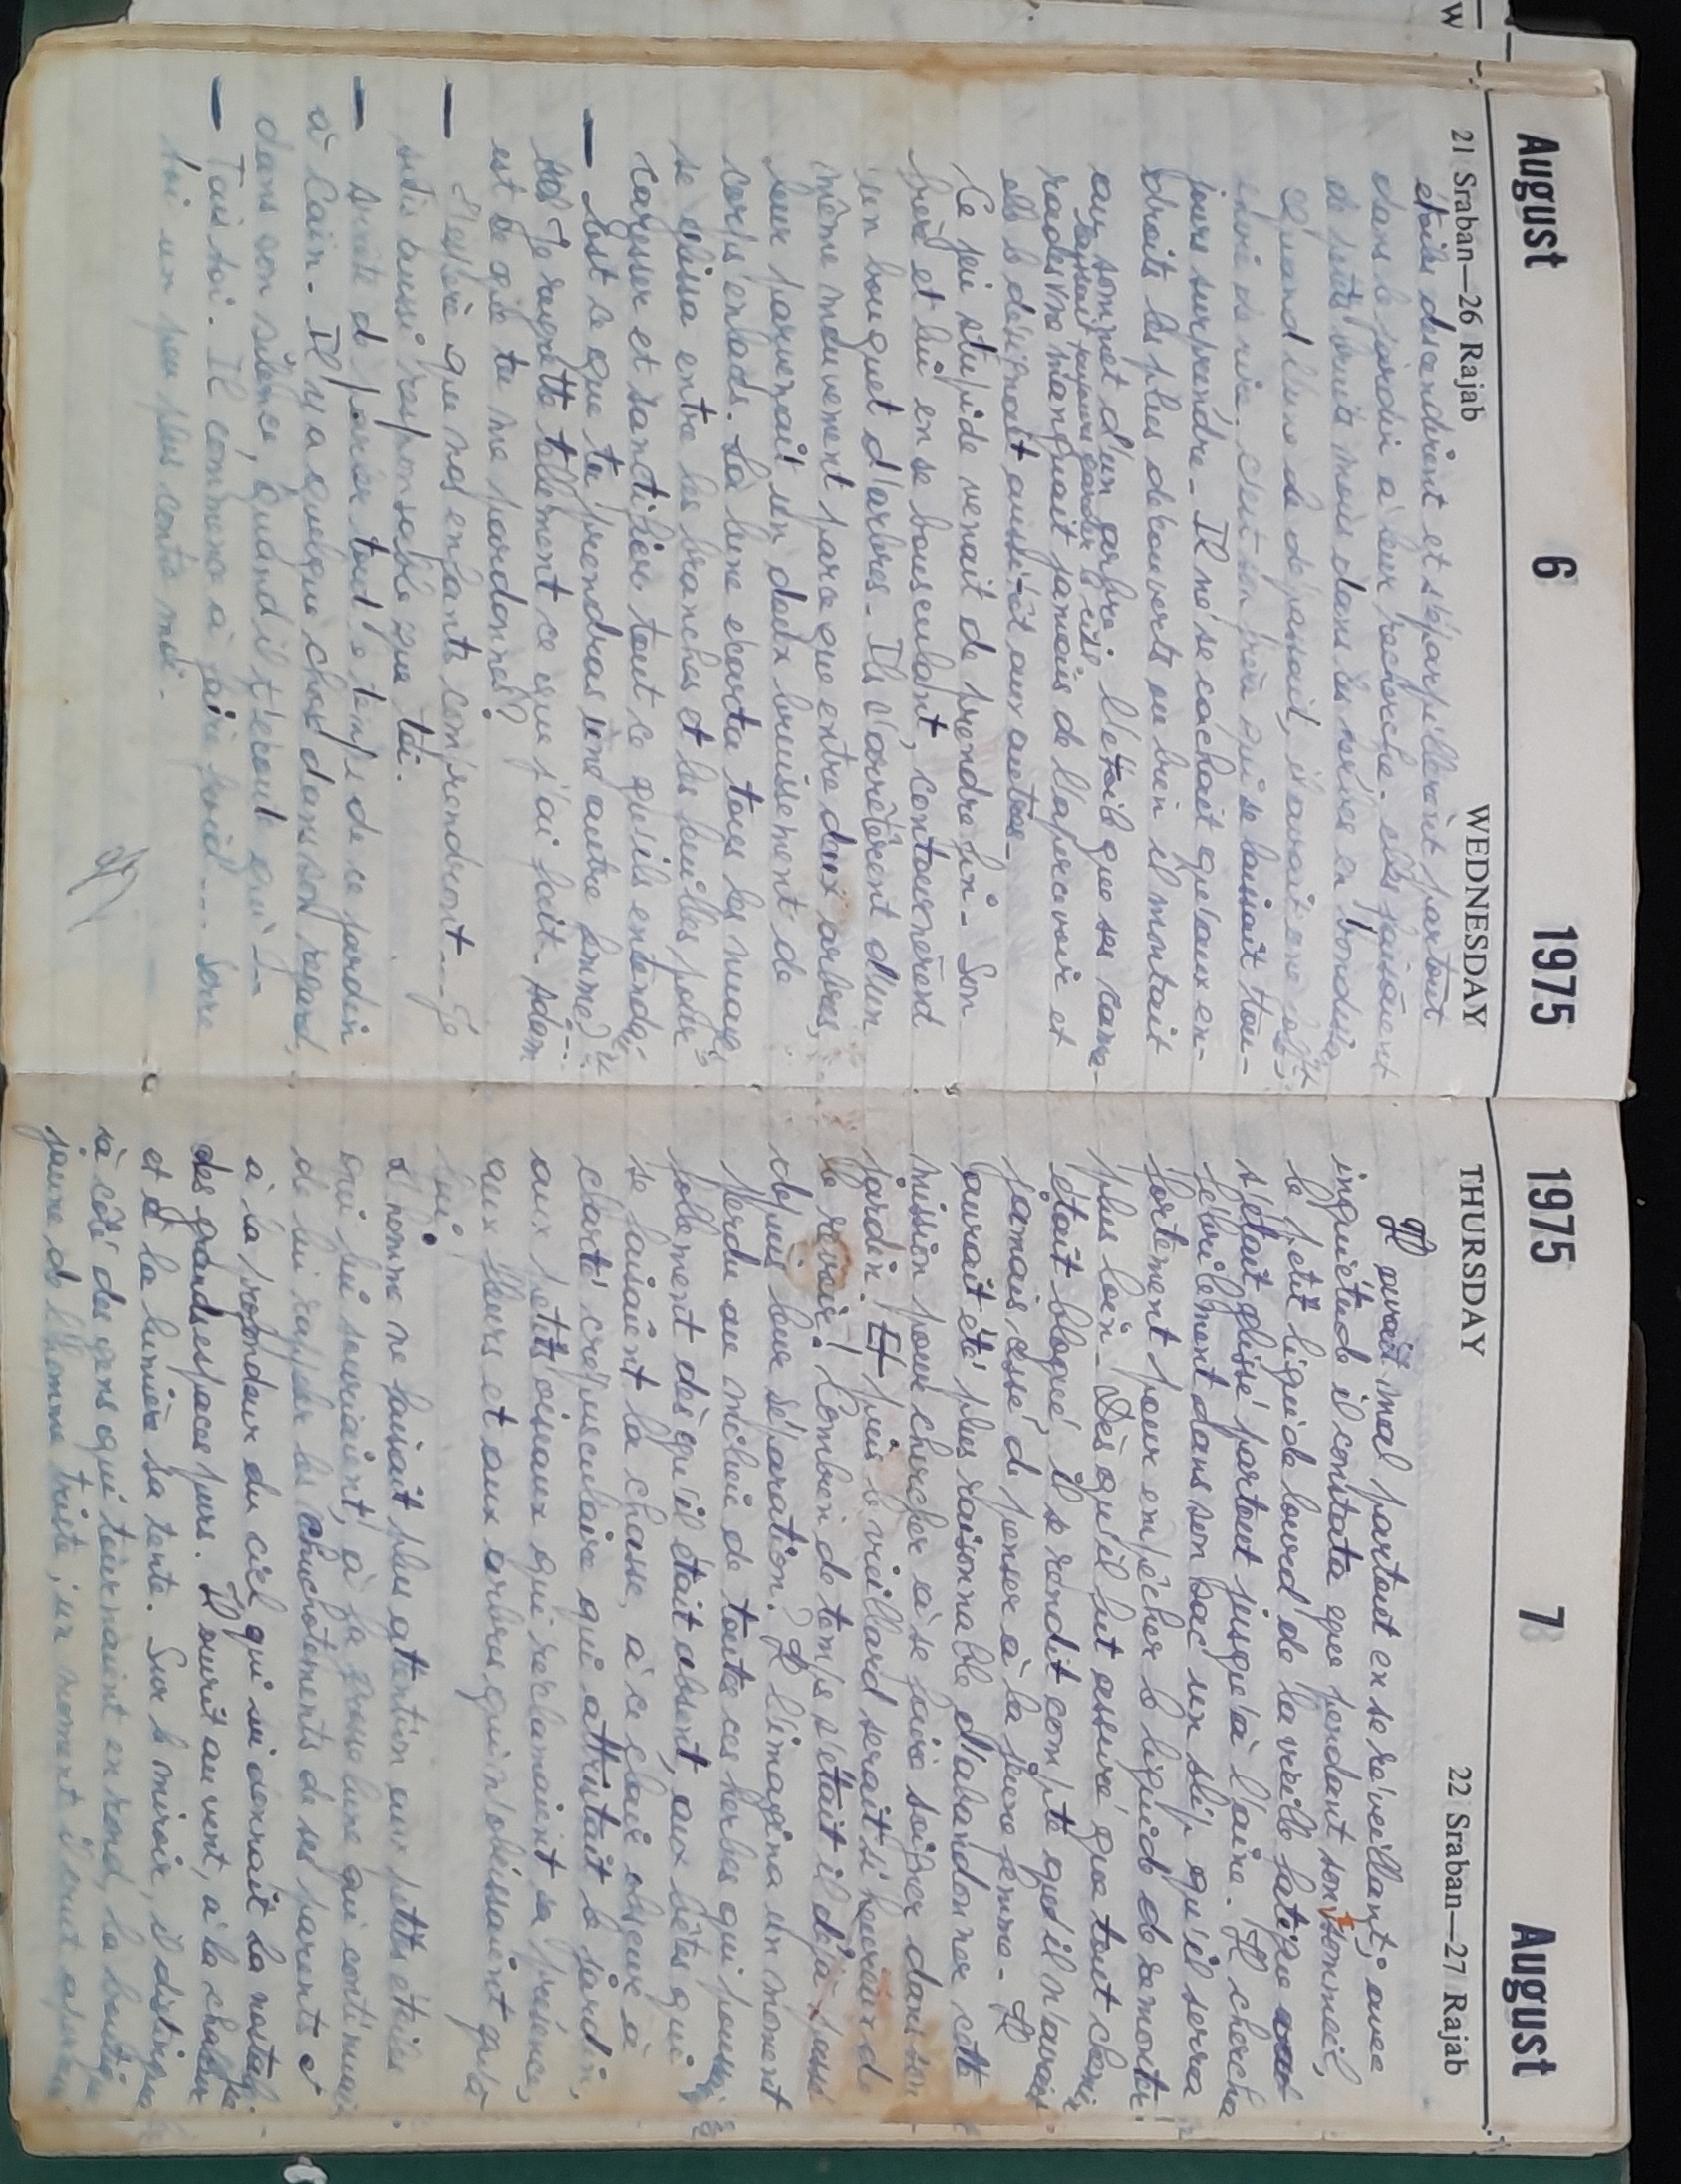 August 6 1975
21 Sraban—26 Rajab WEDNESDAY
étoiles descendirent et s'éparpillèrent partout
dans le jardin à leur recherche. elles faisaient
de petits bruits mous dans les herbes en
Quand l'une le dépassait, il avait une
envie de rire. c'est son frère qui se laissait tou-
jours surprendre. Il ne se cachait qu'aux en-
droits les plus découverts ou bien il montait
au sommet d'un arbre. l'étoile que ses cama-
rades ne manquait jamais de l'apercevoir et
elle le désignait aussitôt aux autres.
Ce jeu stupide venait de prendre fin. Son
frère et lui en se bousculant, contournèrent
un bouquet d'arbres. Ils s'arrêtèrent d'un
même mouvement parce que entre deux arbres,
leur parvenait un doux bruissement de
corps enlacés. La lune écarta tous les nuages
se glissa entre les branches et les feuilles pour
caresser et sanctifier tout ce qu'ils entendaient
— Est ce que tu prendras une autre femme?
Je regrette tellement ce que j'ai fait. Adam
est ce que tu me pardonnes?
— J'espère que nos enfants comprendront... Je
suis aussi responsable que toi.
— Evite d'parler tout le temps de ce jardin
à Caïn. Il y a quelque chose dans son regard,
dans son silence, quand il t'écoute qui...
— Tais toi. Il commence à faire froid... Serre
toi un peu plus contre moi.
1975 7 August
THURSDAY 22 Sraban—27 Rajab
Il avait mal partout en se réveillant; avec
inquiétude il constata que pendant son sommeil,
le petit liquide lourd de la vieille fatigue
s'était glissé partout jusqu'à l'aine. Il chercha
fébrilement dans son sac un slip qu'il serra
fortement pour empêcher le liquide de remonter
plus loin. Dès qu'il fut assuré que tout chemin
était bloqué, il se rendit compte qu'il n'avait
jamais cessé de penser à la jeune femme. Il
aurait été plus raisonnable d'abandonner cette
mission pour chercher à se faire soigner dans son
jardin! Et puis le vieillard serait si heureux de
le revoir! Combien de temps s'était il déjà passé
depuis leur séparation? Il l'imagina un moment
perdu au milieu de toutes ces herbes qui poussaient
follement dès qu'il était absent, aux bêtes qui
se faisaient la chasse, à ce clair obscur à
clarté crépusculaire qui attristait le jardin,
aux petits oiseaux qui réclamaient sa présence,
aux fleurs et aux arbres qui n'obéissaient qu'à
lui.
L'homme ne faisait plus attention aux petites étoiles
qui lui souriaient, à la grosse lune qui continuait
de lui rappeler les chuchotements de ses parents et
à la profondeur du ciel qui lui donnait la nostalgie
des grands espaces purs. Il ouvrit au vent, à la chaleur
et à la lumière sa tente. Sur le miroir, il distingua
à côté des gens qui tournaient en rond, la bougie
jaune de l'homme triste; un moment il crut